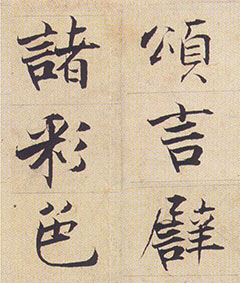 頌言辟
諸彩色